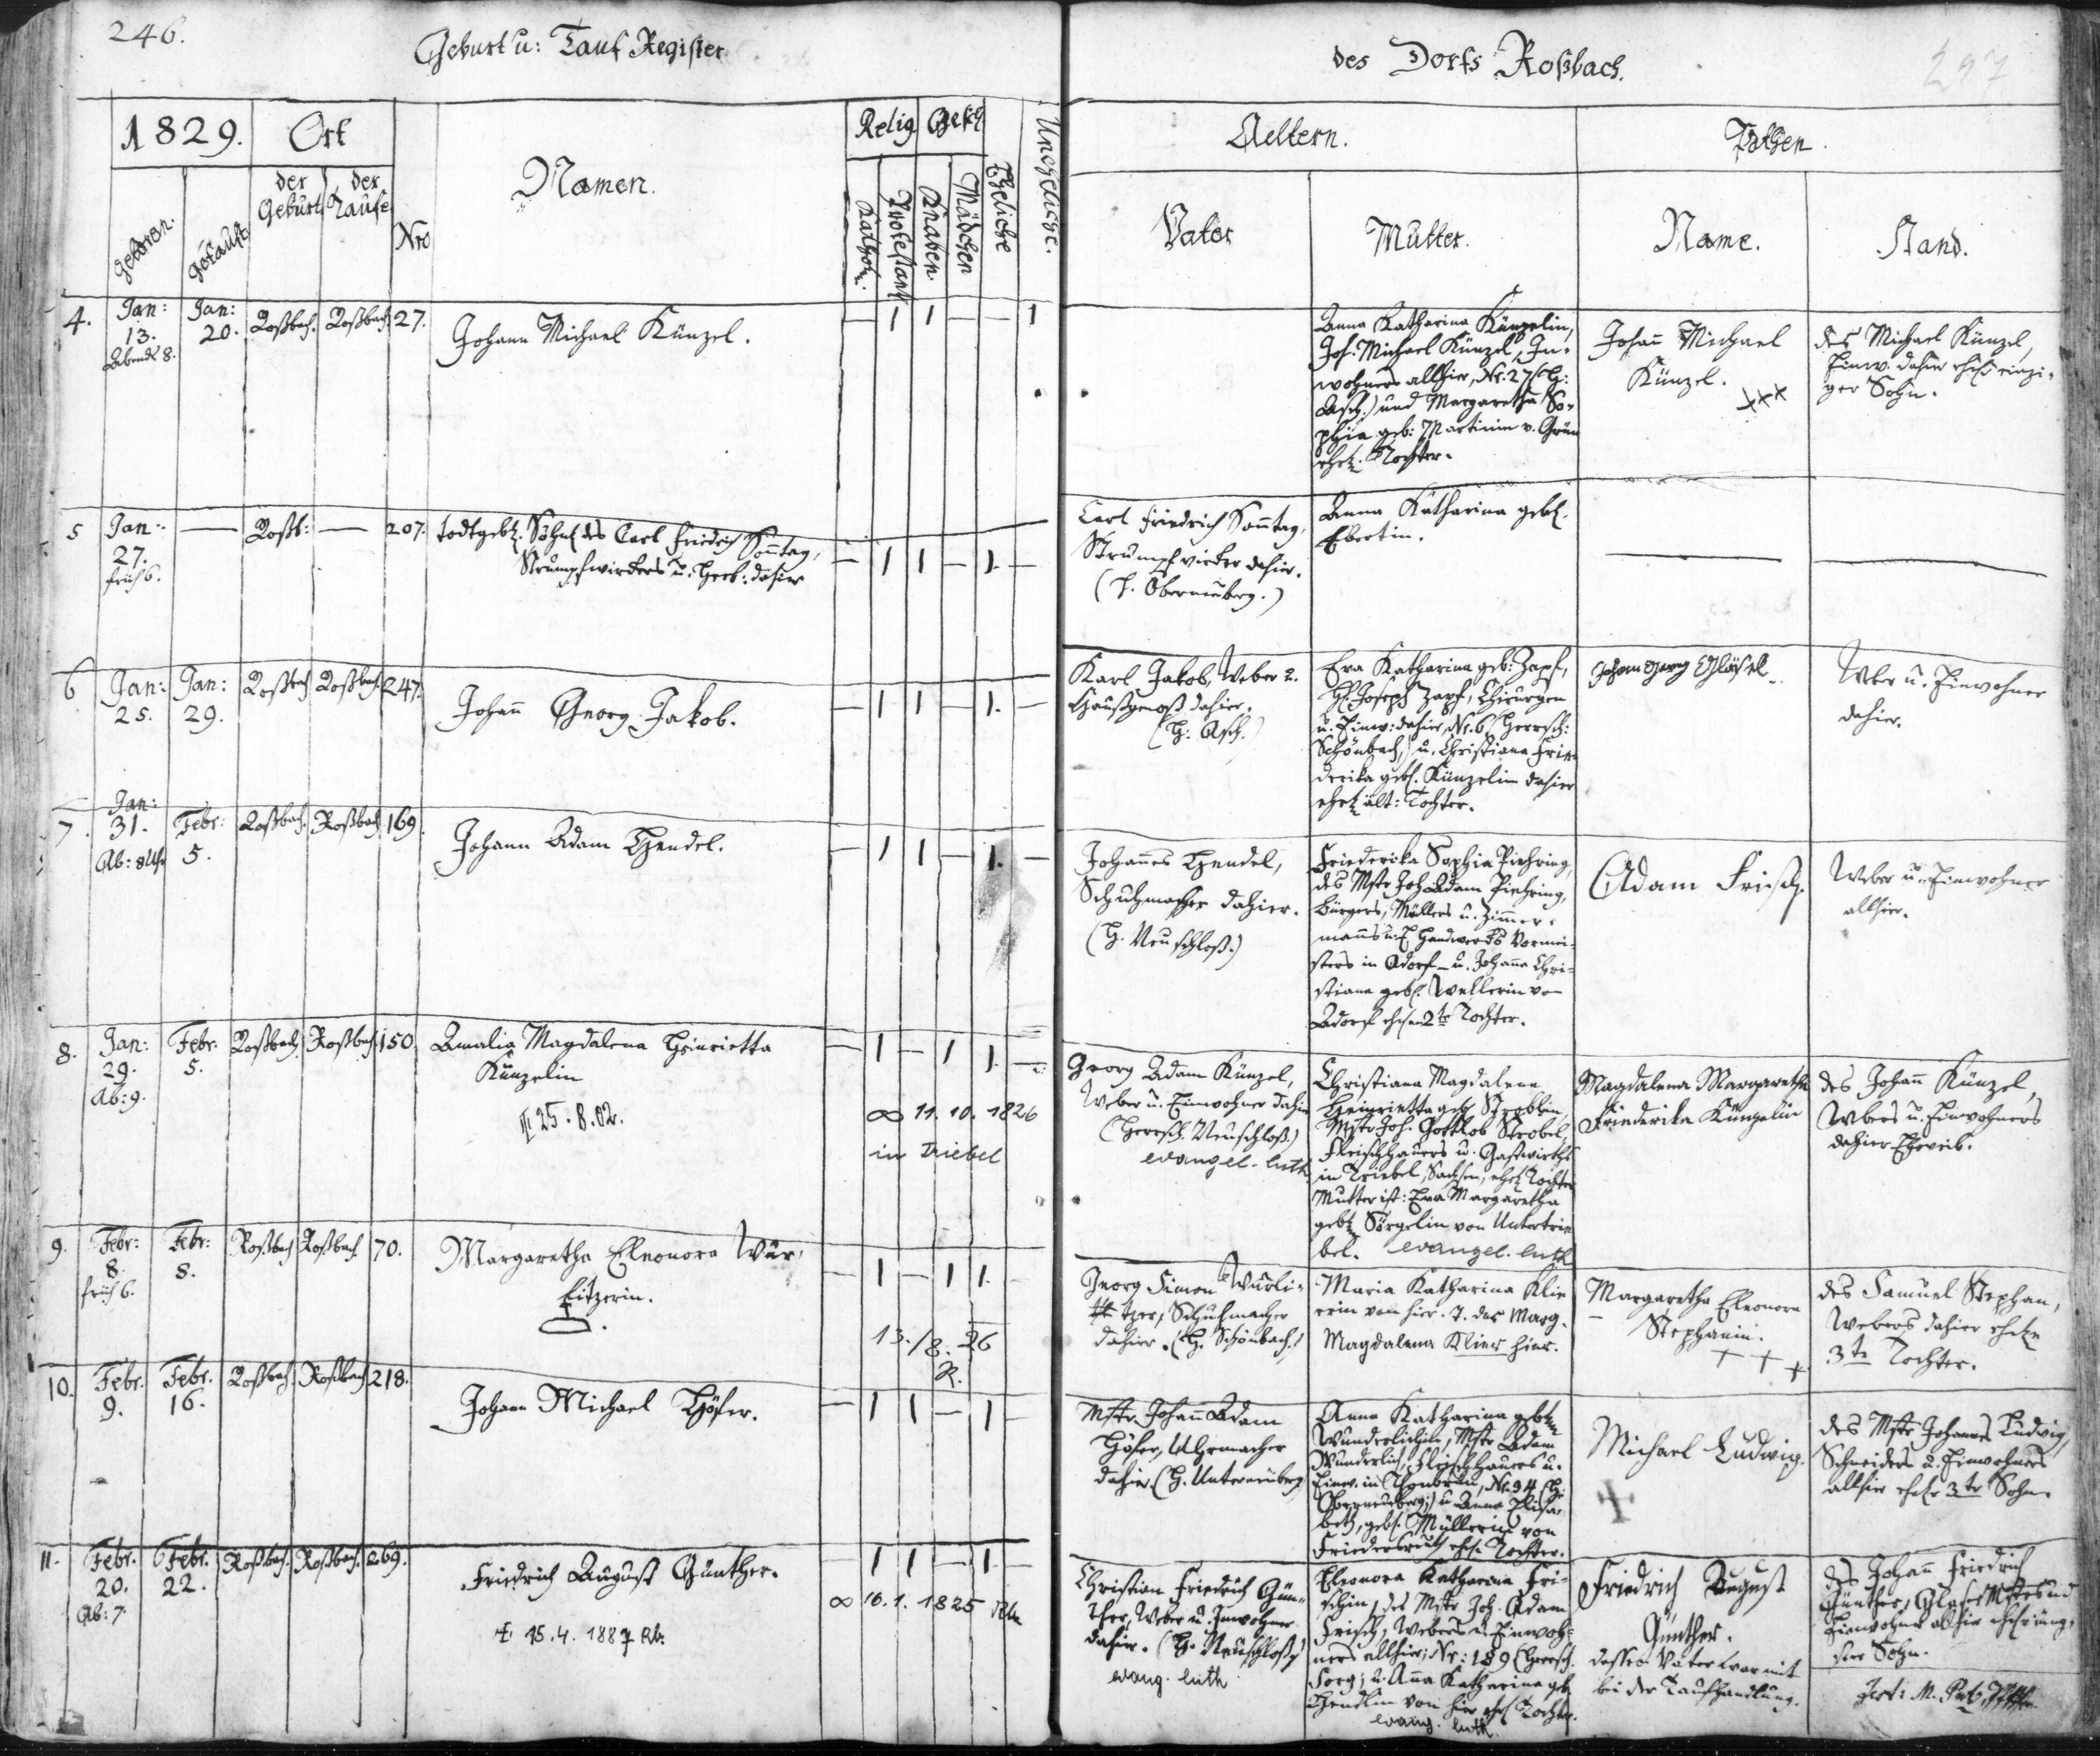 246.
Geburt u: Tauf Register
des Dorfs Roßbach.
297
1829.
Ort
Namen.
Relig.
Gesch
Eheliche
Uneheliche.
geboren.
getauft
der Geburt
der Taufe
Nro
Kathol.
Protestant
Knaben.
Mädchen
Aeltern.
Pathen.
Vater
Mutter.
Name.
Stand.
4. Jan: Jan: Roßbach. Roßbach. 27.
13. 20.
Abends 8.
Johann Michael Künzel.
— 1 1 — — 1
Anna Katharina Künzelin,
Joh. Michael Künzel, In-
wohners allhier, Nr. 27 (H:
Asch.) und Margaretha So-
phia geb: Martinin v. Grün
ehel. Tochter.
Johann Michael
Künzel.
+++
des Michael Künzel,
Einw. dahier ehel. einzi-
ger Sohn.
5 Jan: — Roßb: — 207.
27.
früh 6.
todtgeb. Söhnl. des Carl Friedrich Sonntag,
Strumpfwirkers u. Herb: dahier
— 1 1 — 1. —
Carl Friedrich Sonntag,
Strumpfwirker dahier.
(H. Oberneuberg.)
Anna Katharina gebl.
Ebertin.
6 Jan: Jan: Roßbach Roßbach. 247.
25. 29.
Johann Georg Jakob.
— 1 1 — 1. —
Karl Jakob, Weber u.
Hausgenoß dahier.
(H. Asch.)
Eva Katharina geb: Zapf,
H. Joseph Zapf, Chirurgen
u. Einw: dahier, Nr. 6 (Herrsch:
Schönbach,) u. Christiana Frie-
derika gebl. Künzelin dahier
ehel. ält: Tochter.
Johann Georg Gläsel.
Weber u. Einwohner
dahier.
7. Jan: 31. Febr: Roßbach. Roßbach 169.
Ab: 8 Uhr 5.
Johann Adam Hendel.
— 1 1 — 1. —
Johannes Hendel,
Schuhmacher dahier.
(H. Neuschloß.)
Friederika Sophia Piehring,
des Mstr Joh. Adam Piehring,
Bürgers, Müllers u. Zimmer-
manns u. Handwerks Vormei-
sters in Adorf u. Johanna Chri-
stiana gebl. Wellerin von
Adorf ehel. 2te Tochter.
Adam Frisch.
Weber u. Einwohner
allhier.
8. Jan: Febr. Roßbach Roßbach. 150.
29. 5.
Ab: 9.
Amalia Magdalena Heinrietta
Künzelin
25.8.02.
— 1 — 1 1. —
∞ 11. 10. 1826
in Triebel
Georg Adam Künzel,
Weber u. Einwohner dahier
(Herrsch. Neuschloß.)
evangel. luth.
Christiana Magdalena
Heinrietta geb. Stroblin,
Mstr Joh. Gottlob Strobel,
Fleischhauers u. Gastwirths
in Triebel, Sachsen, ehel. Tochter
Mutter ist: Eva Margaretha
gebl. Sörgelin von Untertrie-
bel. evangel. luth
Magdalena Margaretha
Friederika Künzelin
des Johann Künzel,
Webers u. Einwohners
dahier Eheweib.
9. Febr: Febr: Roßbach Roßbach. 70.
8. 8.
früh 6.
Margaretha Eleonora Wur-
litzerin.
— 1 — 1 1. —
13./8. 26
R.
Georg Simon Wurli-
tzer, Schuhmacher
dahier. (H. Schönbach.)
Maria Katharina Klie-
rin von hier. T. der Marg.
Magdalena Klier hier.
Margaretha Eleonora
Stephanin.
+ + +
des Samuel Stephan,
Webers dahier ehel.
3te Tochter.
10. Febr. Febr. Roßbach. Roßbach 218.
9. 16.
Johann Michael Höfer.
— 1 1 — 1 —
Mstr. Johann Adam
Höfer, Uhrmacher
dahier. (H. Unterneuberg)
Anna Katharina gebl.
Wunderlichin, Mstr Adam
Wunderlich, Fleischhauers u.
Einw. in Thonbrunn, Nr. 94 (H.
Oberneuberg;) u. Anna Elisa-
beth, gebl. Müllerin von
Friedersreuth ehel. Tochter.
Michael Ludwig.
+
des Mstr Johannes Ludwig,
Schneiders u. Einwohners
allhier ehel. 3ter Sohn.
11. Febr. Febr. Roßbach. Roßbach. 269.
20. 22.
Ab: 7.
Friedrich August Günther.
† 15.4. 1887 Rb.
1 1 — 1. —
∞ 16. 1. 1825 Rb.
Christian Friedrich Gün-
ther, Weber u. Inwohner
dahier. (H. Neuschloß)
evang. luth
Eleonora Katharina Fri-
schin, des Mstr Joh. Adam
Frisch, Webers u. Einwoh-
ners allhier, Nr: 189 (Herrsch.
Sorg; u. Anna Katharina geb.
Hendlin von hier ehel. Tochter.
evang. luth.
Friedrich August
Günther.
dessen Vater war mit
bei der Taufhandlung.
des Johann Friedrich
Günther, Glaser
Einwohner allhier ehel. jüng-
ster Sohn.